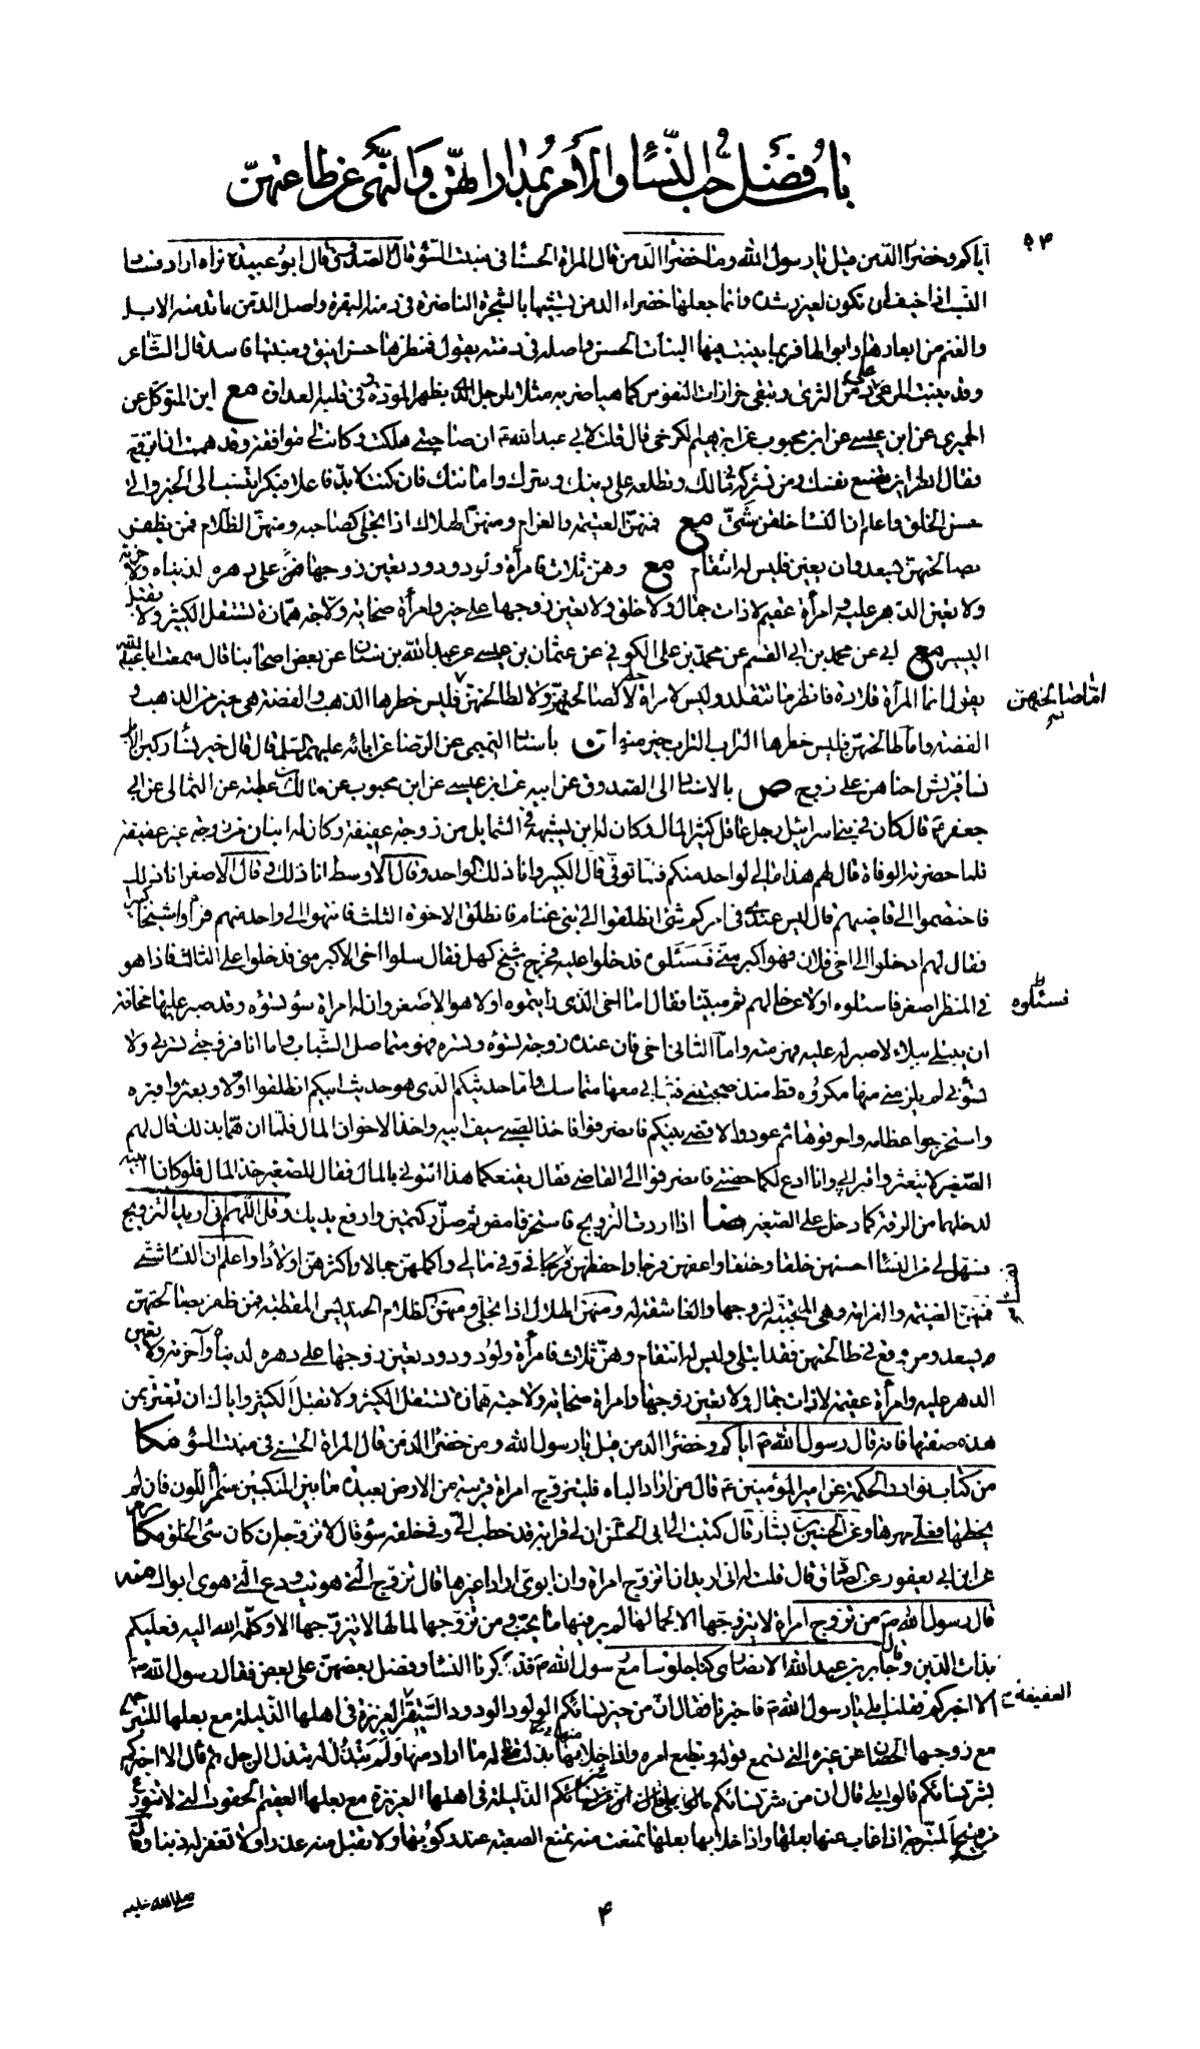 باب فضل حب النساء والأمر بمداراتهن والنهى عن طاعتهن
۵۴
اياكم وخضراء الدمن قيل يا رسول الله وما خضراء الدمن قال المراة الحسناء في منبت السوء قال الصدوق قال ابو عبيدة نراه اراد فساد
النسب اذا خيف ان يكون لغير رشدة وانما جعلها خضراء الدمن تشبيها بالشجرة الناضرة في دمنة البقرة واصل الدمن ما تدمنه الابل
والغنم من ابعارها وابوالها فربما ينبت فيها النبات الحسن واصله في دمنة يقول فمنظرها حسن انيق ومنبتها فاسد قال الشاعر
وقد ينبت المرعى على دمن الثرى وتبقى حزازات النفوس كما هيا ضربه مثلا للرجل الذي يظهر المودة وفي قلبه العداوة مع ابن المتوكل عن
الحميري عن ابن عيسى عن ابن محبوب عن ابراهيم الكرخي قال قلت لابي عبد الله ع ان صاحبتي هلكت وكانت لي موافقة وقد هممت ان اتزوج
فقال انظر اين تضع نفسك ومن تشركه في مالك وتطلعه على دينك وسرك وامانتك فان كنت لا بد فاعلا فبكرا تنسب الى الخير والى
حسن الخلق واعلم ان النساء خلقن شتى مع فمنهن الغنيمة والغرام ومنهن الهلال اذا تجلى لصاحبه ومنهن الظلام فمن يظفر
بصالحتهن يسعد ومن يغبن فليس له انتقام مع وهن ثلاث فامرأة ولود ودود تعين زوجها على دهره لدنياه ولآخرته
ولا تعين الدهر عليه وامرأة عقيم لا ذات جمال ولا خلق ولا تعين زوجها على خير وامرأة صخابة ولاجة همازة تستقل الكثير ولا تقبل
اليسير مع ابي عن محمد بن ابي القسم عن محمد بن علي الكوفي عن عثمان بن عيسى عن عبد الله بن سنان عن بعض اصحابنا قال سمعت ابا عبد الله
يقول انما المرأة قلادة فانظر ما تتقلد وليس لامراة خطر لا لصالحتهن ولا لطالحتهن فليس خطرها الذهب والفضة هي خير من الذهب و
اما صالحتهن
الفضة واما طالحتهن فليس خطرها التراب التراب خير منها ن باسناد التميمي عن الرضا عن ابائه عليهم السلام قال قال خير نساء ركبن الابل
نساء قريش احناهن على زوج ص بالاسناد الى الصدوق عن ابيه عن ابن عيسى عن ابن محبوب عن مالك بن عطية عن الثمالي عن ابي
جعفر ع قال كان في بني اسرائيل رجل عاقل كثير المال وكان له ابن يشبهه في الشمايل من زوجة عفيفة وكان له ابنان من زوجة غير عفيفة
فلما حضرته الوفاة قال لهم هذا مالي لواحد منكم فلما توفي قال الكبير انا ذلك الواحد وقال الاوسط انا ذلك وقال الاصغر انا ذلك
فاختصموا الى قاضيهم قال ليس عندي في امركم شئ انطلقوا الى بني غنام الاخوة الثلث فانتهوا الى واحد منهم فرأوا شيخا كبيرا
فقال لهم ادخلوا الى اخي فلان فهو اكبر مني فسئلوه فدخلوا عليه فخرج شيخ كهل فقال سلوا اخي الاكبر مني فدخلوا على الثالث فاذا هو
فسئلوه
في المنظر اصغر فاسئلوه اولا عن حالهم ثم مبينا فقال اما اخي الذي رايتموه اولا هو الاصغر وان له امراة سوء تسوؤه وقد صبر عليها مخافة
ان يبتلى ببلاء لا صبر له عليه فهرمته واما الثاني اخي فان عنده زوجة تسوؤه وتسره فهو متماسك الشباب واما انا فزوجتي تسرني ولا
تسؤني لم يلزمني منها مكروه قط منذ صحبتني فشبابي معها متماسك واما حديثكم الذي هو حديث ابيكم انطلقوا اولا وبعثروا قبره
واستخرجوا عظامه واحرقوها ثم عودوا لاقضي بينكم فانصرفوا فاخذ الصبي سيف ابيه واخذ الاخوان المال فلما ان هما بذلك قال لهم
الصغير لا تبعثروا قبر ابي وانا ادع لكما حصتي فانصرفوا الى القاضي فقال يقنعكما هذا ائتوني بالمال فقال للصغير خذ المال فلو كانا ابنيه
لدخلهما من الرقة كما دخل على الصغير ضا اذا اردت التزويج فاستخر وامض ثم صل ركعتين وارفع يديك وقل اللهم اني اريد التزويج
فسهل لي من النساء احسنهن خلقا وخلقا واعفهن فرجا واحفظهن نفسا في وفي مالي واكملهن جمالا واكثرهن اولادا واعلم ان النساء شتى
فمنهن الغنيمة والغرامة وهي المتحببة لزوجها والعاشقة له ومنهن الهلال اذا تجلى ومنهن الظلام الحنديس المقطبة فمن ظفر بصالحتهن
يسعد ومن وقع في طالحتهن فقد ابتلى وليس له انتقام وهن ثلاث فامرأة ولود ودود تعين زوجها على دهره لدنياه وآخرته ولا تعين
الدهر عليه وامرأة عقيمة لا ذات جمال ولا تعين زوجها وامراة صخابة ولاجة همازة تستقل الكثير ولا تقبل الكثير واياك ان تغتر بمن
هذه صفتها فانه قال رسول الله ص اياكم وخضراء الدمن قيل يا رسول الله ومن خضراء الدمن قال المراة الحسناء في منبت السوء مكا
من كتاب نوادر الحكمة عن امير المؤمنين ع قال من اراد الباه فليتزوج امراة قريبة من الارض بعيدة ما بين المنكبين سمراء اللون فان لم
يحظ بها فعلي مهرها وعن الحسين بن بشار قال كتبت الى ابي الحسن ان لي قرابة قد خطب الي وفي خلقه سوء قال لا تزوجه ان كان سئ الخلق مكا
عن ابن ابي يعفور عن الصادق قال قلت له اني اريد ان اتزوج امراة وان ابوي ارادا غيرها قال تزوج التي هويت ودع التي هوى ابواك منه
قال رسول الله ص من تزوج امراة لا يتزوجها الا لجمالها لم ير فيها ما يحب ومن تزوجها لمالها لا يتزوجها الا وكله الله اليه فعليكم
بذات الدين وقال جابر بن عبد الله الانصاري كنا جلوسا مع رسول الله ص فذكرنا النساء وفضل بعضهن على بعض فقال رسول الله ص
الا اخبركم فقلنا بلى يا رسول الله ص فاخبرنا فقال ان من خير نسائكم الولود الودود الستيرة العزيزة في اهلها الذليلة مع بعلها المتبرجة
العفيفة
مع زوجها الحصان عن غيره التي تسمع قوله وتطيع امره واذا خلا بها بذلت له ما اراد منها ولم تبذل له تبذل الرجل ثم قال الا اخبركم
بشر نسائكم قالوا بلى قال ان من شر نسائكم الذليلة في اهلها العزيزة مع بعلها العقيم الحقود التي لا تتورع
من قبيح المتبرجة اذا غاب عنها بعلها واذا خلا بها بعلها تمنعت منه تمنع الصعبة عند ركوبها ولا تقبل منه عذرا ولا تغفر له ذنبا وقال
صلى الله عليه
۴